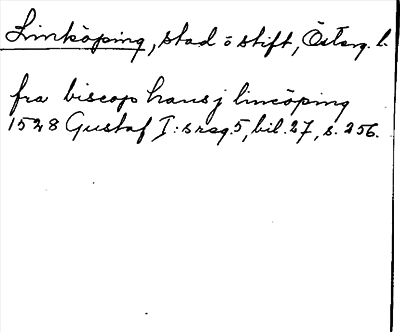 Linköping, stad o stift, Österg. l.
fra biscop hans j lincöping
1528 Gustaf I:s reg. 5, bil. 27, s. 256.